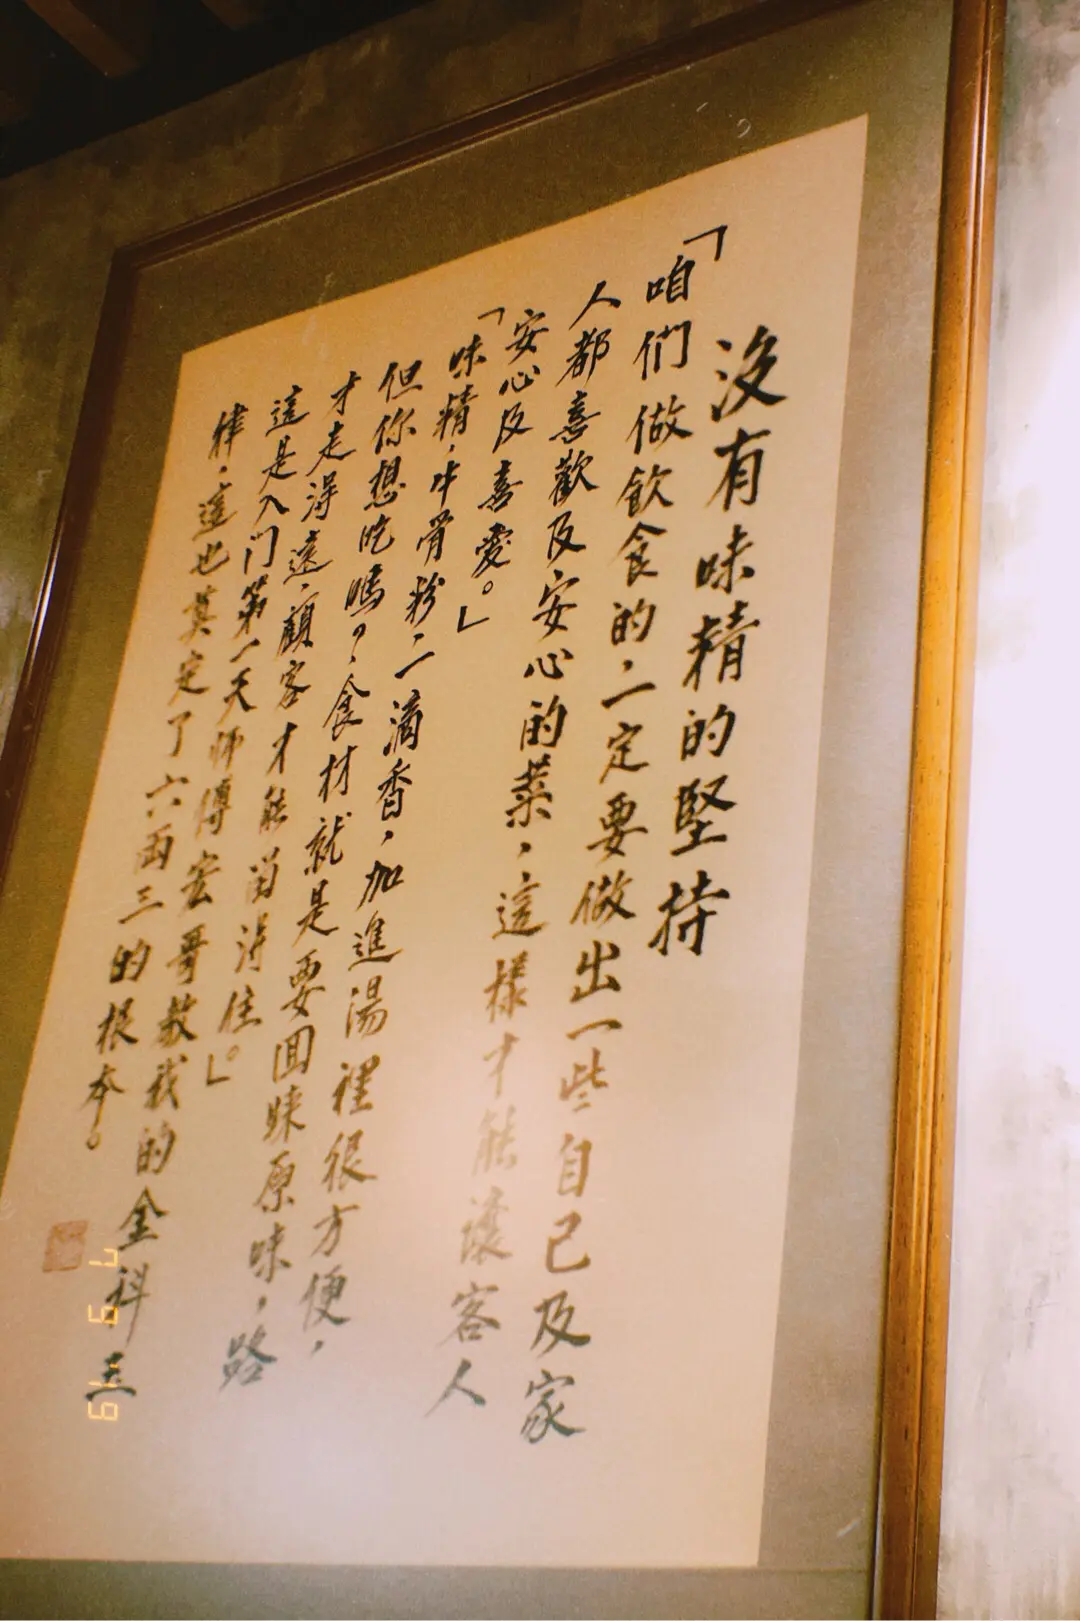 沒有味精的堅持
「咱們做飲食的，一定要做出一些自己及家
人都喜歡及安心的菜，這樣才能讓客人
安心及喜愛。」
「味精，牛骨粉，一滴香，加進湯裡很方便，
但你想吃嗎？，食材就是要回味原味，路
才走得遠，顧客才能留得住。」
這是入门第一天師傅宏哥教我的金科玉
律，這也奠定了六兩三的根本。
7 9 '19